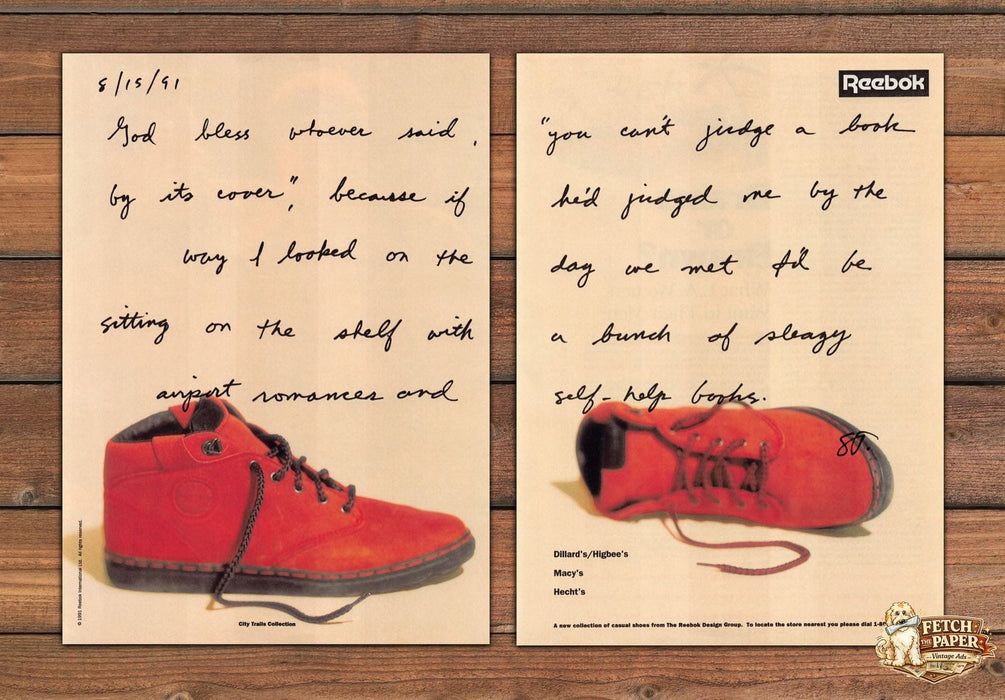 8/15/91
Reebok
God bless whoever said, "you can't judge a book
by its cover", because if he'd judged me by the
way I looked on the day we met I'd be
sitting on the shelf with a bunch of sleazy
airport romances and self-help books.
© 1991 Reebok International Ltd. All rights reserved.
City Trails Collection
Dillard's/Higbee's
Macy's
Hecht's
A new collection of casual shoes from The Reebok Design Group. To locate the store nearest you please dial
FETCH
THE PAPER
Vintage Ads